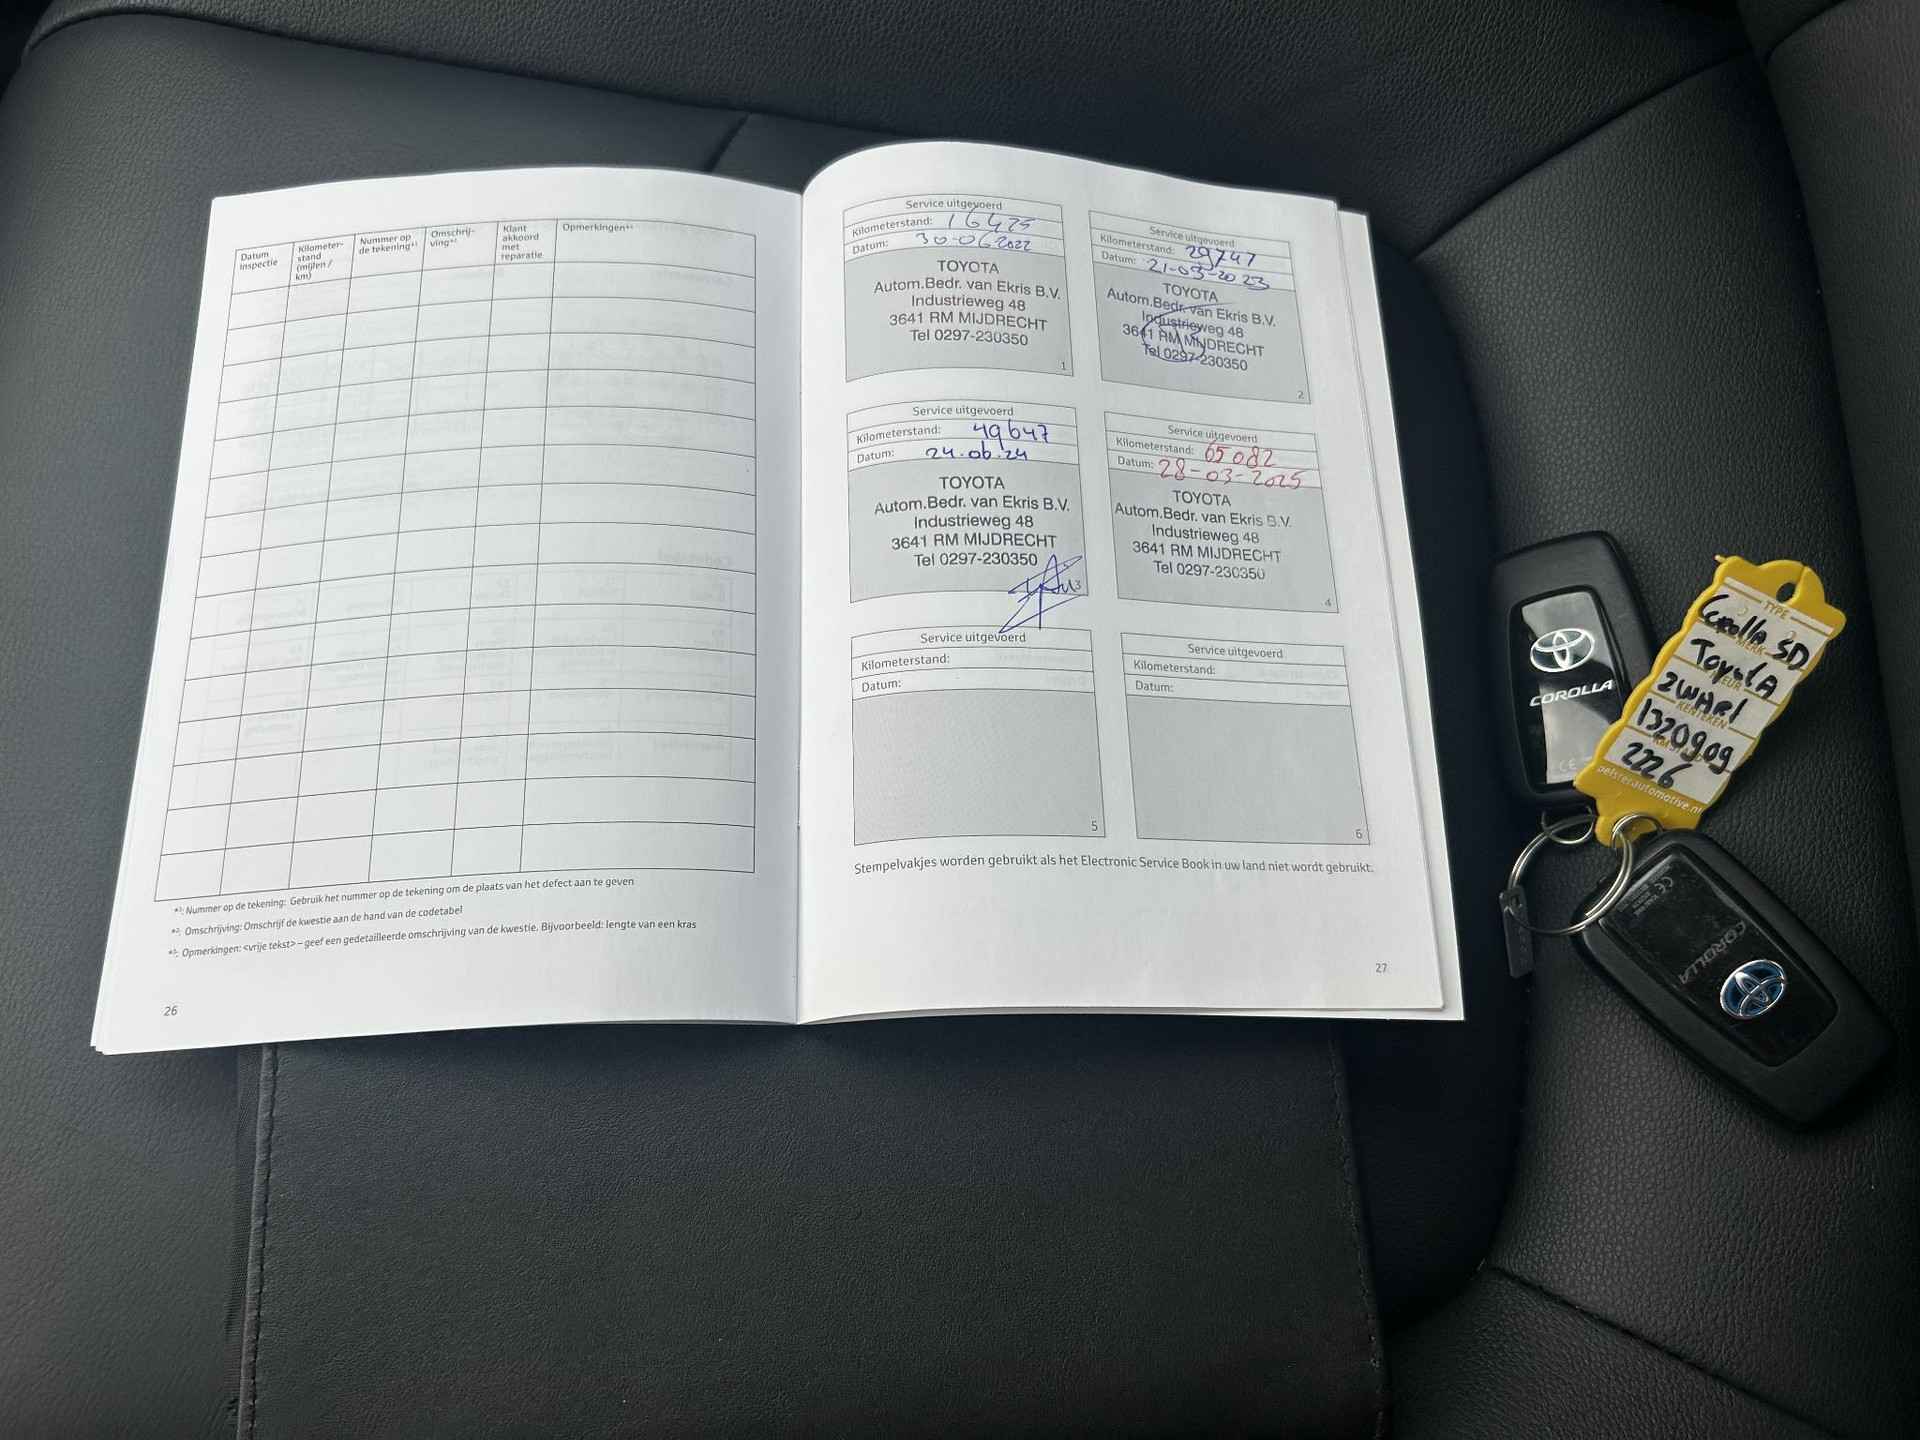 Datum inspectie
Kilometer-stand (mijlen / km)
Nummer op de tekening*¹⁾
Omschrij-ving*²⁾
Klant akkoord met reparatie
Opmerkingen*³⁾
*¹⁾: Nummer op de tekening: Gebruik het nummer op de tekening om de plaats van het defect aan te geven
*²⁾: Omschrijving: Omschrijf de kwestie aan de hand van de codetabel
*³⁾: Opmerkingen: <vrije tekst> – geef een gedetailleerde omschrijving van de kwestie. Bijvoorbeeld: lengte van een kras
26
Service uitgevoerd
Kilometerstand: 16425
Datum: 30-06 2022
TOYOTA
Autom.Bedr. van Ekris B.V.
Industrieweg 48
3641 RM MIJDRECHT
Tel 0297-230350
1
Service uitgevoerd
Kilometerstand: 29747
Datum: 21-03-2023
TOYOTA
Autom.Bedr. van Ekris B.V.
Industrieweg 48
3641 RM MIJDRECHT
Tel 0297-230350
2
Service uitgevoerd
Kilometerstand: 49647
Datum: 24.06.24
TOYOTA
Autom.Bedr. van Ekris B.V.
Industrieweg 48
3641 RM MIJDRECHT
Tel 0297-230350
3
Service uitgevoerd
Kilometerstand: 65082
Datum: 28-03-2025
TOYOTA
Autom.Bedr. van Ekris B.V.
Industrieweg 48
3641 RM MIJDRECHT
Tel 0297-230350
4
Service uitgevoerd
Kilometerstand:
Datum:
5
Service uitgevoerd
Kilometerstand:
Datum:
6
Stempelvakjes worden gebruikt als het Electronic Service Book in uw land niet wordt gebruikt.
27
COROLLA
CE
TYPE
Corolla SD
MERK
ToyotA
KLEUR
ZWART
KENTEKEN
1320909
2226
pelsterautomotive.nl
COROLLA
CE